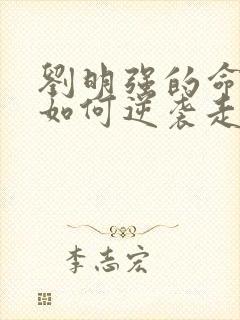 劉明强的命
如何逆袭走
李志宏